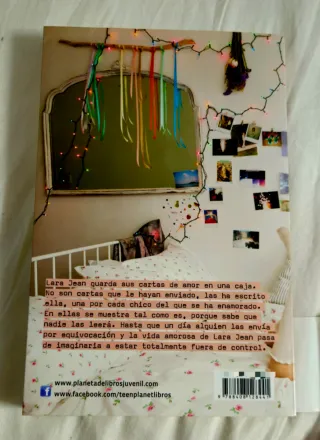 Lara Jean guarda sus cartas de amor en una caja.
No son cartas que le hayan enviado, las ha escrito
ella, una por cada chico del que se ha enamorado.
En ellas se muestra tal como es, porque sabe que
nadie las leerá. Hasta que un día alguien las envía
por equivocación y la vida amorosa de Lara Jean pasa
de imaginaria a estar totalmente fuera de control.
www.planetadelibrosjuvenil.com
www.facebook.com/teenplanetlibros